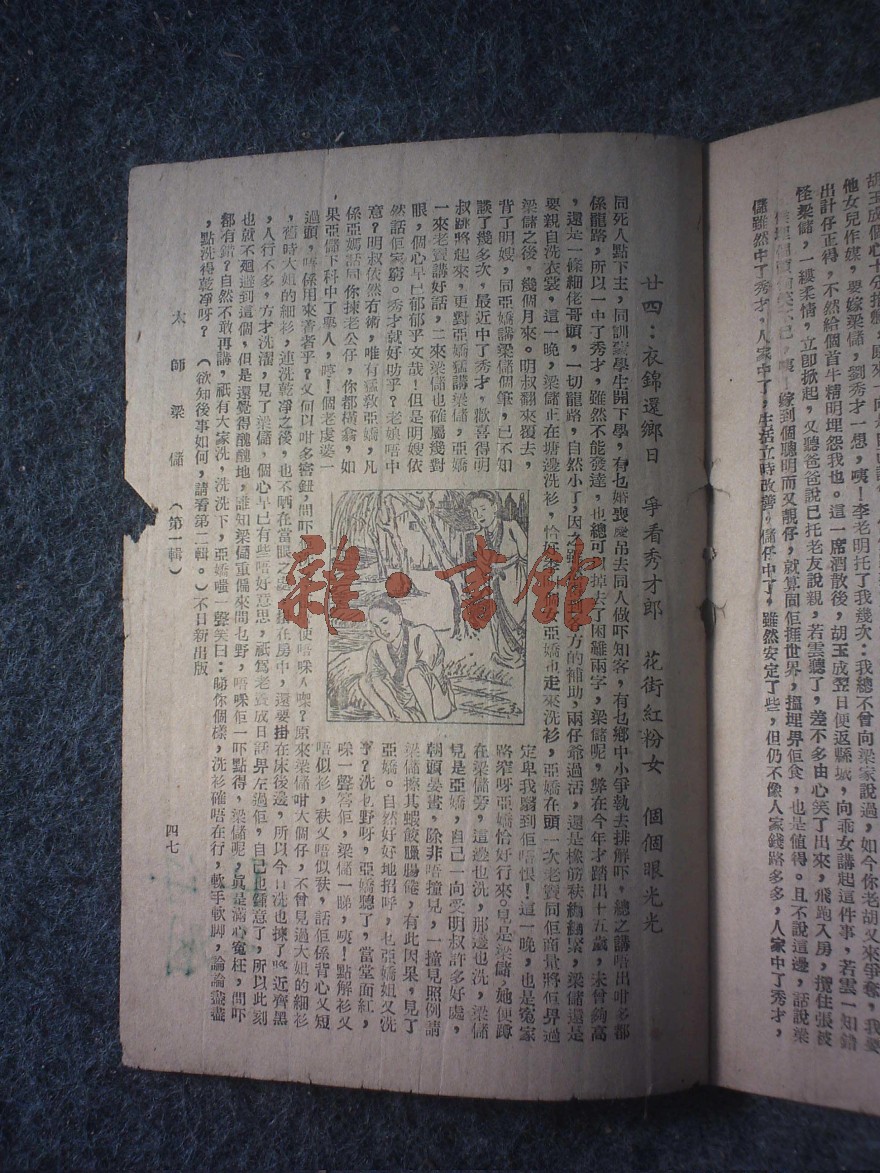 胡玉成個心十分
他女兒作媒，要嫁梁儲，劉秀才一想，咦！李老明托了我幾次：我總不曾向梁家說過，如今你老胡又來爭奪，我要
出計仔正得，不然給個首牛精明埋怨我也。這一席酒散後，胡玉成翌日便返縣城，向乖女講起這件事，若雲一知錯
怪梁儲，一縷柔情，立卽掀起，又聽爸爸說已托老友說親，若雲聽了，差不多由心笑了出來，飛跑入房，攬住張被
嫁到個聰明而又靚仔，就算同佢捱世界，搵埋畀佢食，也是値得。且不說這邊，話說梁
儲雖然中了秀才，人家中了，生活立時改善，儲仔中了，雖然安定了些，但仍不像人家錢路多多，人家中了秀才，
廿四：衣錦還鄉日　爭看秀才郎　花街紅粉女　個個眼光光
同死人點下主，同訓蒙學生開下學，有乜婚喪慶吊去同人做吓知客，有乜鄉中小爭執去排解吓，總之講唔出咁多都
係龍路，所以一中了秀才，雖然不能發達，也總可以掉去了困難兩字，梁儲呢，弊在今年才踏出十五歲，未曾夠高
，還是一條細佬哥頭，一切龍路，自然小了，因之，方的補助，兩仔爺過活，還是橡筋秋綳綳緊，梁儲還是
要親自洗衣裳，這一晚，梁儲正在塘邊洗衫，恰好亞嬌也走來洗衫，亞嬌在頭一次老竇同佢商量將佢畀過
梁儲之後，幾個月來。明叔翻來覆去，
背了明嫂，同亞嬌講梁儲個筆，已不知
談了幾多次，最近中了秀才，歡喜得明
叔跳將起來，更對亞嬌猛講梁儲，亞嬌
一來老竇講好話，二來梁儲也確屬幾對
眼，個心早已郁郁乎文哉！但是明嫂依
然話佢家窮。秀才就好叻乎？老娘唔中
意？明叔依然冇術，唯有猛敎亞嬌，凡
係亞媽話同你揀老公仔，你都橫龠，如
果亞儲下科中了舉人，哼！個老虔婆一
定卑我屬到佢唔恨！這一晚，也是冤家
路窄呀亞嬌恰好行來。見是梁儲，她便蹲
在梁儲旁，這邊也洗，那邊也洗，梁儲
見是亞嬌，自己一向受明叔許多好處，
朝頭晏晝，除非唔撞見，一撞見照例請
梁儲擦其蝦餃臘腸饐，有此因果，見了
亞嬌。自然好好地招呼，乜亞嬌姐又洗
㗎？洗乜野呀，亞嬌聽了，當堂面紅，
噗一聲答佢，梁儲一睇，咦！點解衫又
唔似衫，秋又唔似秋，話佢係背心又短
過頭，唔係用來著者乎？又何以咁多密鈕，問吓便唔咪人㗎？原來梁儲咁大個仔，不曾見過大姐的細衫
，舊時大姐的細衫，連洗乾淨之後，也不晒在當眼之處，在房中，還要掛在床後邊，所以今日洗也揀了將近齊黑
，人行不多，方才洗濯，見了梁儲，個心早已有些唔好意思，祇爲老竇成日話畀左過佢，自己也鍾意了，所以此刻
也就不廻避到這個，但是還覺得醜醜地，誰知梁儲重偏來問乜野，唔咪佢一吓點得，梁儲呢，眞是滿心寃枉，問吓
都有錯？自然不敢再講，祇有大家洗，洗洗下，亞嬌嗤一聲笑曰：睇你個樣，洗衫確唔在行，軟手軟脚，論論盡盡
，點洗得乾淨呀？（欲知後事如何，請看第二輯。）不日新出版
太師梁儲（第一輯）
四七
雜·書館